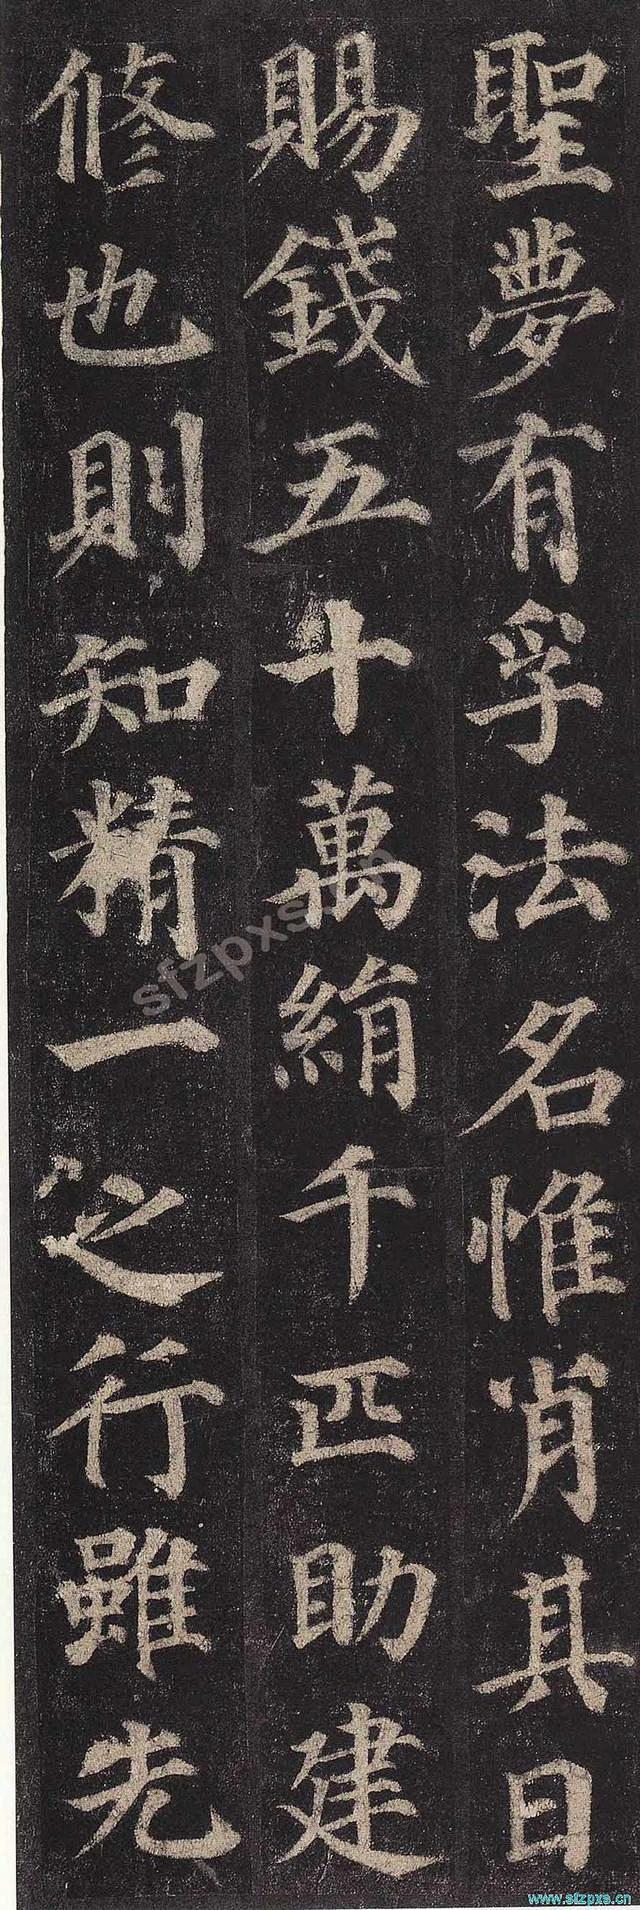 聖夢有孚法名惟肖其日
賜錢五十萬絹千匹助建
修也則知精一之行雖先
sfzpxs.cn
www.sfzpxs.cn